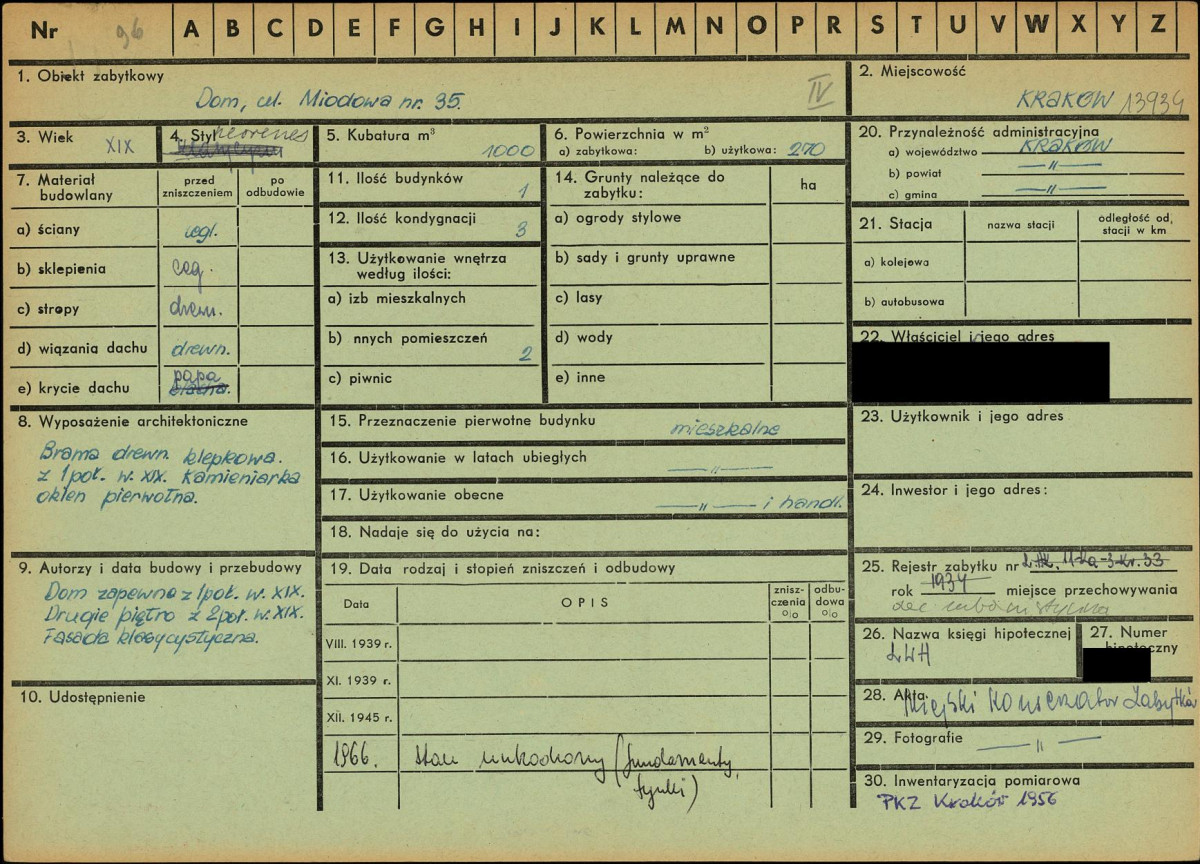 Nr 96 A B C D E F G H I J K L M N O P R S T U V W X Y Z
1. Obiekt zabytkowy
Dom, ul. Miodowa nr. 35.
IV
2. Miejscowość
KRAKÓW 13934
3. Wiek XIX
4. Styl neorenes
5. Kubatura m³
1000
6. Powierzchnia w m²
a) zabytkowa: b) użytkowa: 270
7. Materiał budowlany
przed zniszczeniem
po odbudowie
a) ściany cegl.
b) sklepienia ceg.
c) stropy drewn.
d) wiązania dachu drewn.
e) krycie dachu papa
8. Wyposażenie architektoniczne
Brama drewn. klepkowa.
z 1 poł. w. XIX. Kamieniarka
okien pierwotna.
9. Autorzy i data budowy i przebudowy
Dom zapewne z 1 poł. w. XIX.
Drugie piętro z 2 poł. w. XIX.
Fasada klasycystyczna.
10. Udostępnienie
11. Ilość budynków
1
12. Ilość kondygnacji
3
13. Użytkowanie wnętrza
według ilości:
a) izb mieszkalnych
b) nnych pomieszczeń
2
c) piwnic
14. Grunty należące do
zabytku:
ha
a) ogrody stylowe
b) sady i grunty uprawne
c) lasy
d) wody
e) inne
15. Przeznaczenie pierwotne budynku
mieszkalne
16. Użytkowanie w latach ubiegłych
—"—
17. Użytkowanie obecne
—"— i handl.
18. Nadaje się do użycia na:
19. Data rodzaj i stopień zniszczeń i odbudowy
Data
OPIS
znisz-
czenia
o/o
odbu-
dowa
o/o
VIII. 1939 r.
XI. 1939 r.
XII. 1945 r.
1966. stan uszkodzony (fundamenty,
tynki)
20. Przynależność administracyjna
a) województwo KRAKÓW
b) powiat —"—
c) gmina —"—
21. Stacja
nazwa stacji
odległość od,
stacji w km
a) kolejowa
b) autobusowa
22. Właściciel i jego adres
23. Użytkownik i jego adres
24. Inwestor i jego adres:
25. Rejestr zabytku nr
rok 1934 miejsce przechowywania
26. Nazwa księgi hipotecznej
LWH
27. Numer
hipoteczny
28. Akta Miejski Konserwator Zabytków
29. Fotografie —"—
30. Inwentaryzacja pomiarowa
PKZ Kraków 1956